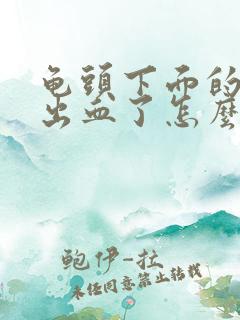 龟頭下面的
出血了怎麽
鲍伊-扗
未经同意禁止转载